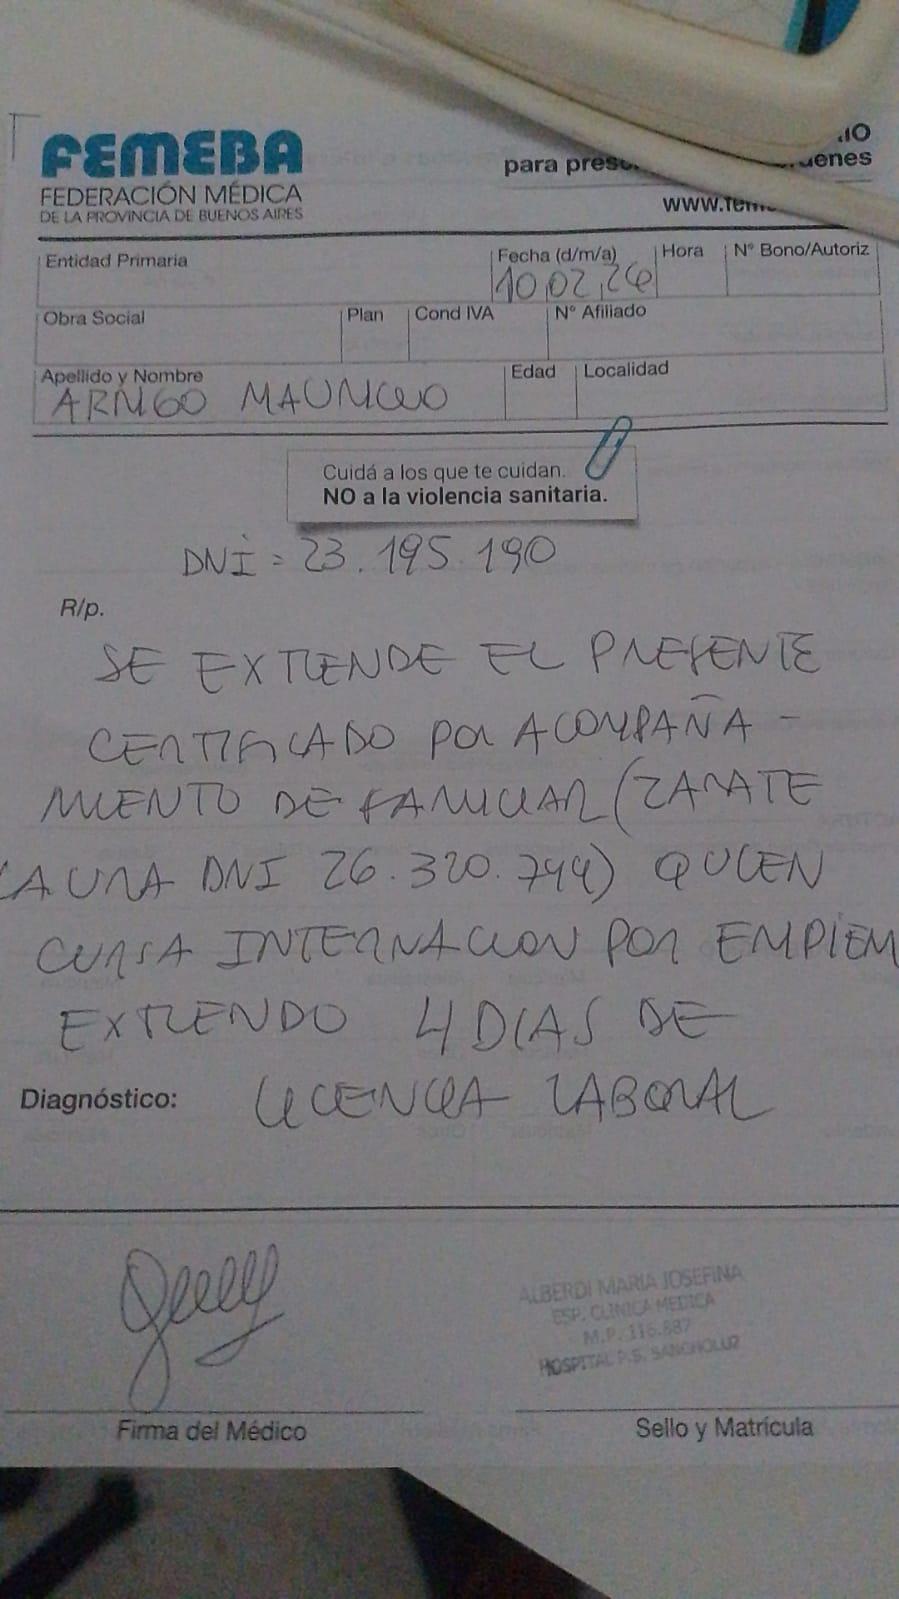 FEMEBA
FEDERACIÓN MÉDICA
DE LA PROVINCIA DE BUENOS AIRES
para
www.
Entidad Primaria
Fecha (d/m/a)
Hora
N° Bono/Autoriz
10,02,26
Obra Social
Plan
Cond IVA
N° Afiliado
Apellido y Nombre
Edad
Localidad
ARNIGO MAURICIO
Cuidá a los que te cuidan.
NO a la violencia sanitaria.
DNI = 23.195.190
R/p.
SE EXTIENDE EL PRESENTE
CERTIFICADO POR ACOMPAÑA-
MIENTO DE FAMILIAR (ZARATE
LAURA DNI 26.320.744) QUIEN
CURSA INTERNACION POR EMPIEM
EXTIENDO 4 DIAS DE
LICENCIA LABORAL
Diagnóstico:
ALBERDI MARIA JOSEFINA
ESP. CLINICA MEDICA
M.P. 116.887
HOSPITAL P.S. SANCHOLUZ
Firma del Médico
Sello y Matrícula